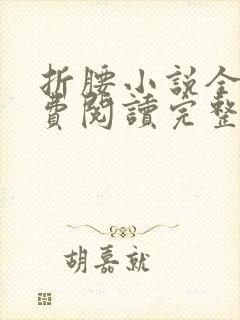 折腰小說全
費閱讀完整
胡嘉就